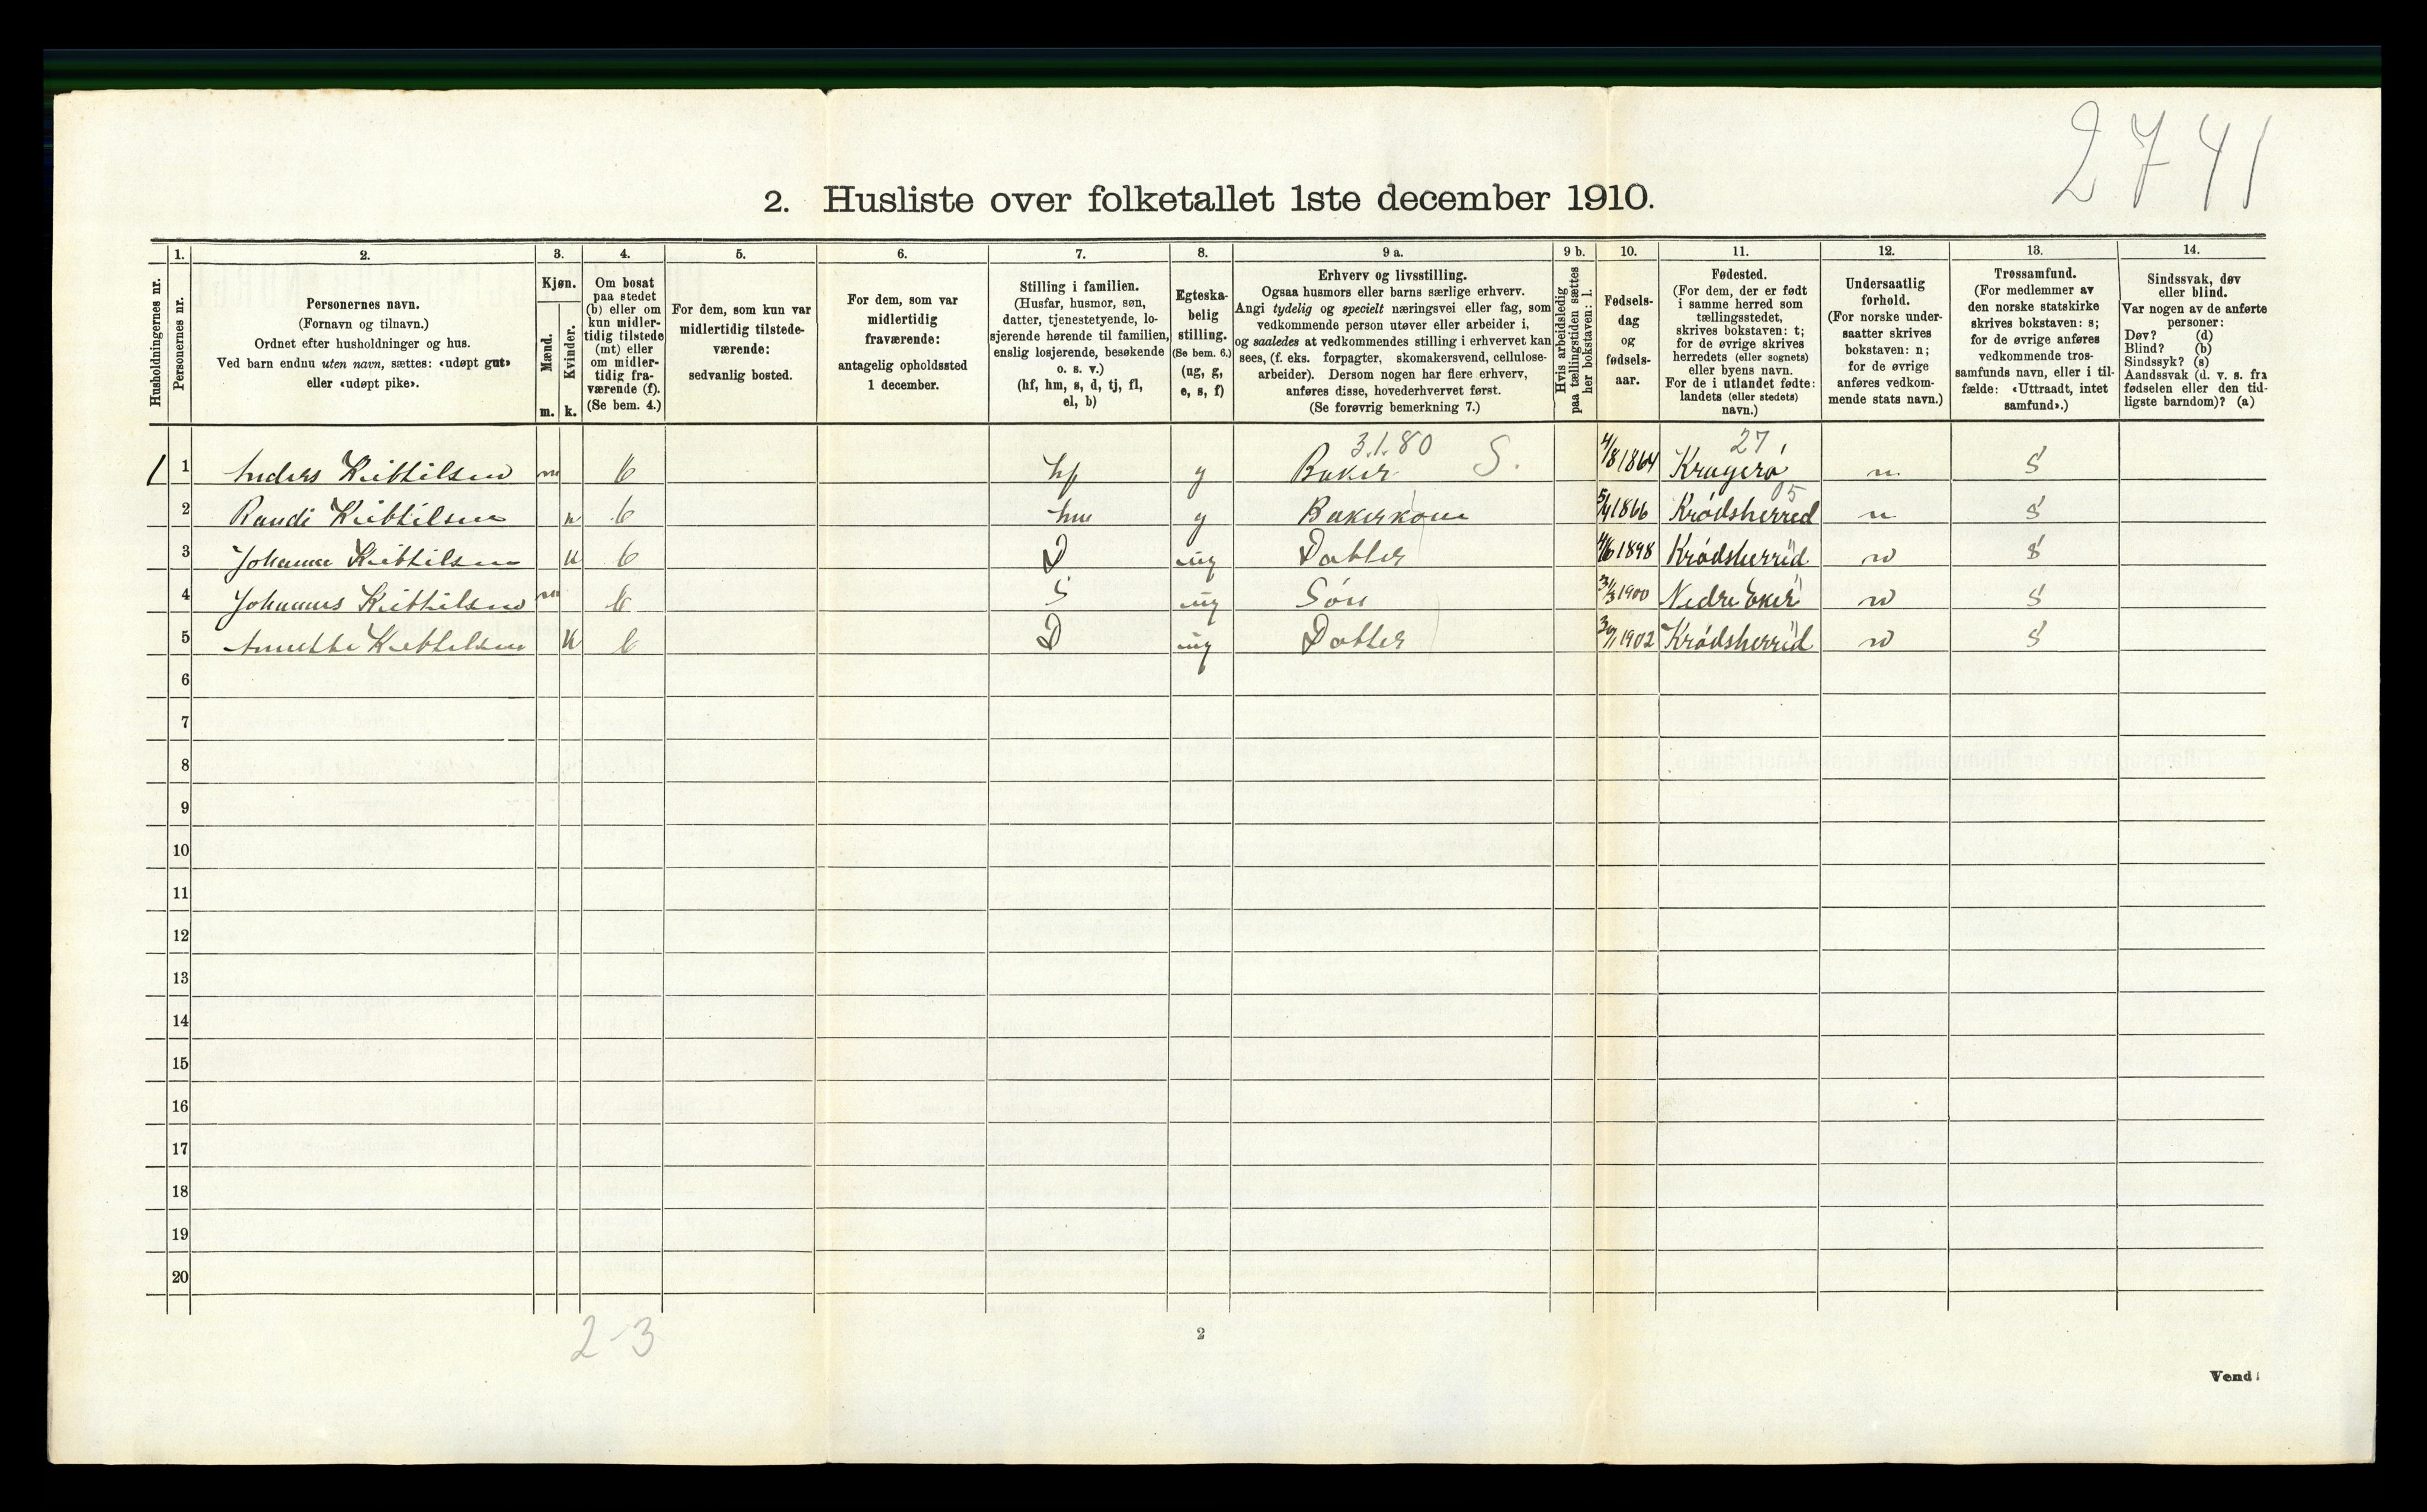 2741
2. Husliste over folketallet 1ste december 1910.
Husholdningernes nr.
1.
Personernes nr.
2.
Personernes navn.
(Fornavn og tilnavn.)
Ordnet efter husholdninger og hus.
Ved barn endnu uten navn, sættes: «udøpt gut»
eller «udøpt pike».
3.
Kjøn.
Mænd.
m.
Kvinder.
k.
4.
Om bosat
paa stedet
(b) eller om
kun midler-
tidig tilstede
(mt) eller
om midler-
tidig fra-
værende (f).
(Se bem. 4.)
5.
For dem, som kun var
midlertidig tilstede-
værende:
sedvanlig bosted.
6.
For dem, som var
midlertidig
fraværende:
antagelig opholdssted
1 december.
7.
Stilling i familien.
(Husfar, husmor, søn,
datter, tjenestetyende, lo-
sjerende hørende til familien,
enslig losjerende, besøkende
o. s. v.)
(hf, hm, s, d, tj, fl,
el, b)
8.
Egteska-
belig
stilling.
(Se bem. 6.)
(ug, g,
e, s, f)
9 a.
Erhverv og livsstilling.
Ogsaa husmors eller barns særlige erhverv.
Angi tydelig og specielt næringsvei eller fag, som
vedkommende person utøver eller arbeider i,
og saaledes at vedkommendes stilling i erhvervet kan
sees, (f. eks. forpagter, skomakersvend, cellulose-
arbeider). Dersom nogen har flere erhverv,
anføres disse, hovederhvervet først.
(Se forøvrig bemerkning 7.)
9 b.
Hvis arbeidsledig
paa tællingstiden sættes
her bokstaven: l.
10.
Fødsels-
dag
og
fødsels-
aar.
11.
Fødested.
(For dem, der er født
i samme herred som
tællingsstedet,
skrives bokstaven: t;
for de øvrige skrives
herredets (eller sognets)
eller byens navn.
For de i utlandet fødte:
landets (eller stedets)
navn.)
12.
Undersaatlig
forhold.
(For norske under-
saatter skrives
bokstaven: n;
for de øvrige
anføres vedkom-
mende stats navn.)
13.
Trossamfund.
(For medlemmer av
den norske statskirke
skrives bokstaven: s;
for de øvrige anføres
vedkommende tros-
samfunds navn, eller i til-
fælde: «Uttraadt, intet
samfund».)
14.
Sindssvak, døv
eller blind.
Var nogen av de anførte
personer:
Døv? (d)
Blind? (b)
Sindssyk? (s)
Aandssvak (d. v. s. fra
fødselen eller den tid-
ligste barndom)? (a)
3.1.80 S. 27
1 1 Anders Kittilsen m b hf g Baker 4/8 1864 Kragerø n s
05
2 Randi Kittilsen k b hm g Bakerkone 1866 Krødsherred n s
3 Johanne Kittilsen k b D ug Datter 1898 Krødsherred n s
4 Johannes Kittilsen m b S ug Søn 1900 Nedre Eker n s
5 Kittilsen k b D ug Datter 1902 Krødsherred n s
6
7
8
9
10
11
12
13
14
15
16
17
18
19
20
2-3
2
Vend!